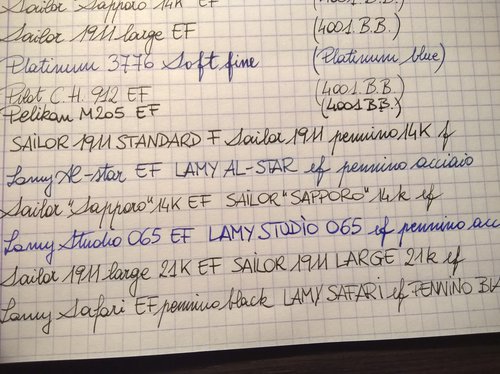 Sailor "Sapporo" 14K EF (4001.B.B.)
Sailor 1911 large EF (4001.B.B.)
Platinum 3776 Soft fine (Platinum blue)
Pilot C.H. 912 EF (4001.B.B.)
Pelikan M205 EF (4001 B.B.)
SAILOR 1911 STANDARD F Sailor 1911 pennino 14K f
Lamy Al-star EF LAMY AL-STAR ef pennino acciaio
Sailor "Sapporo" 14K EF SAILOR "SAPPORO" 14k ef
Lamy Studio 065 EF LAMY STUDIO 065 ef pennino acc
Sailor 1911 large 21K EF SAILOR 1911 LARGE 21k ef
Lamy Safari EF pennino black LAMY SAFARI ef PENNINO BLA